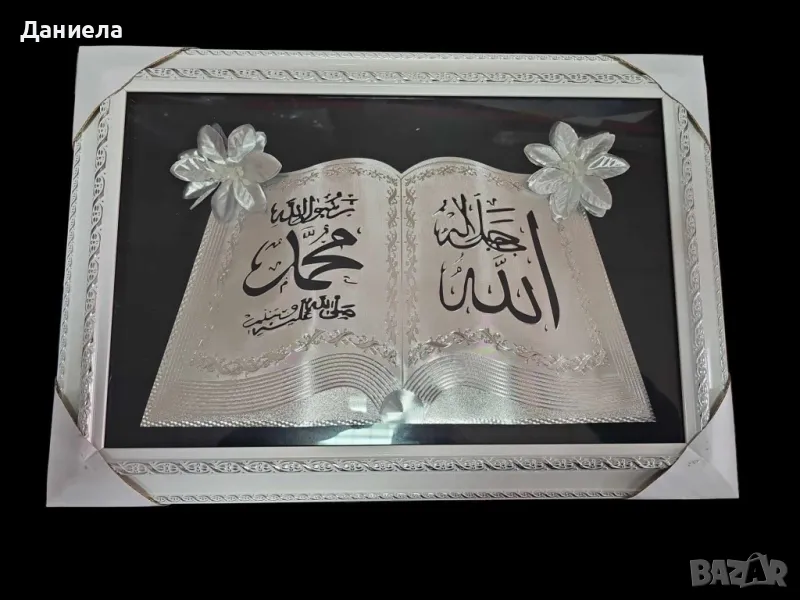 Даниела
الله
جل جلاله
رسول الله
محمد
صلى الله عليه وسلم
BAZAR